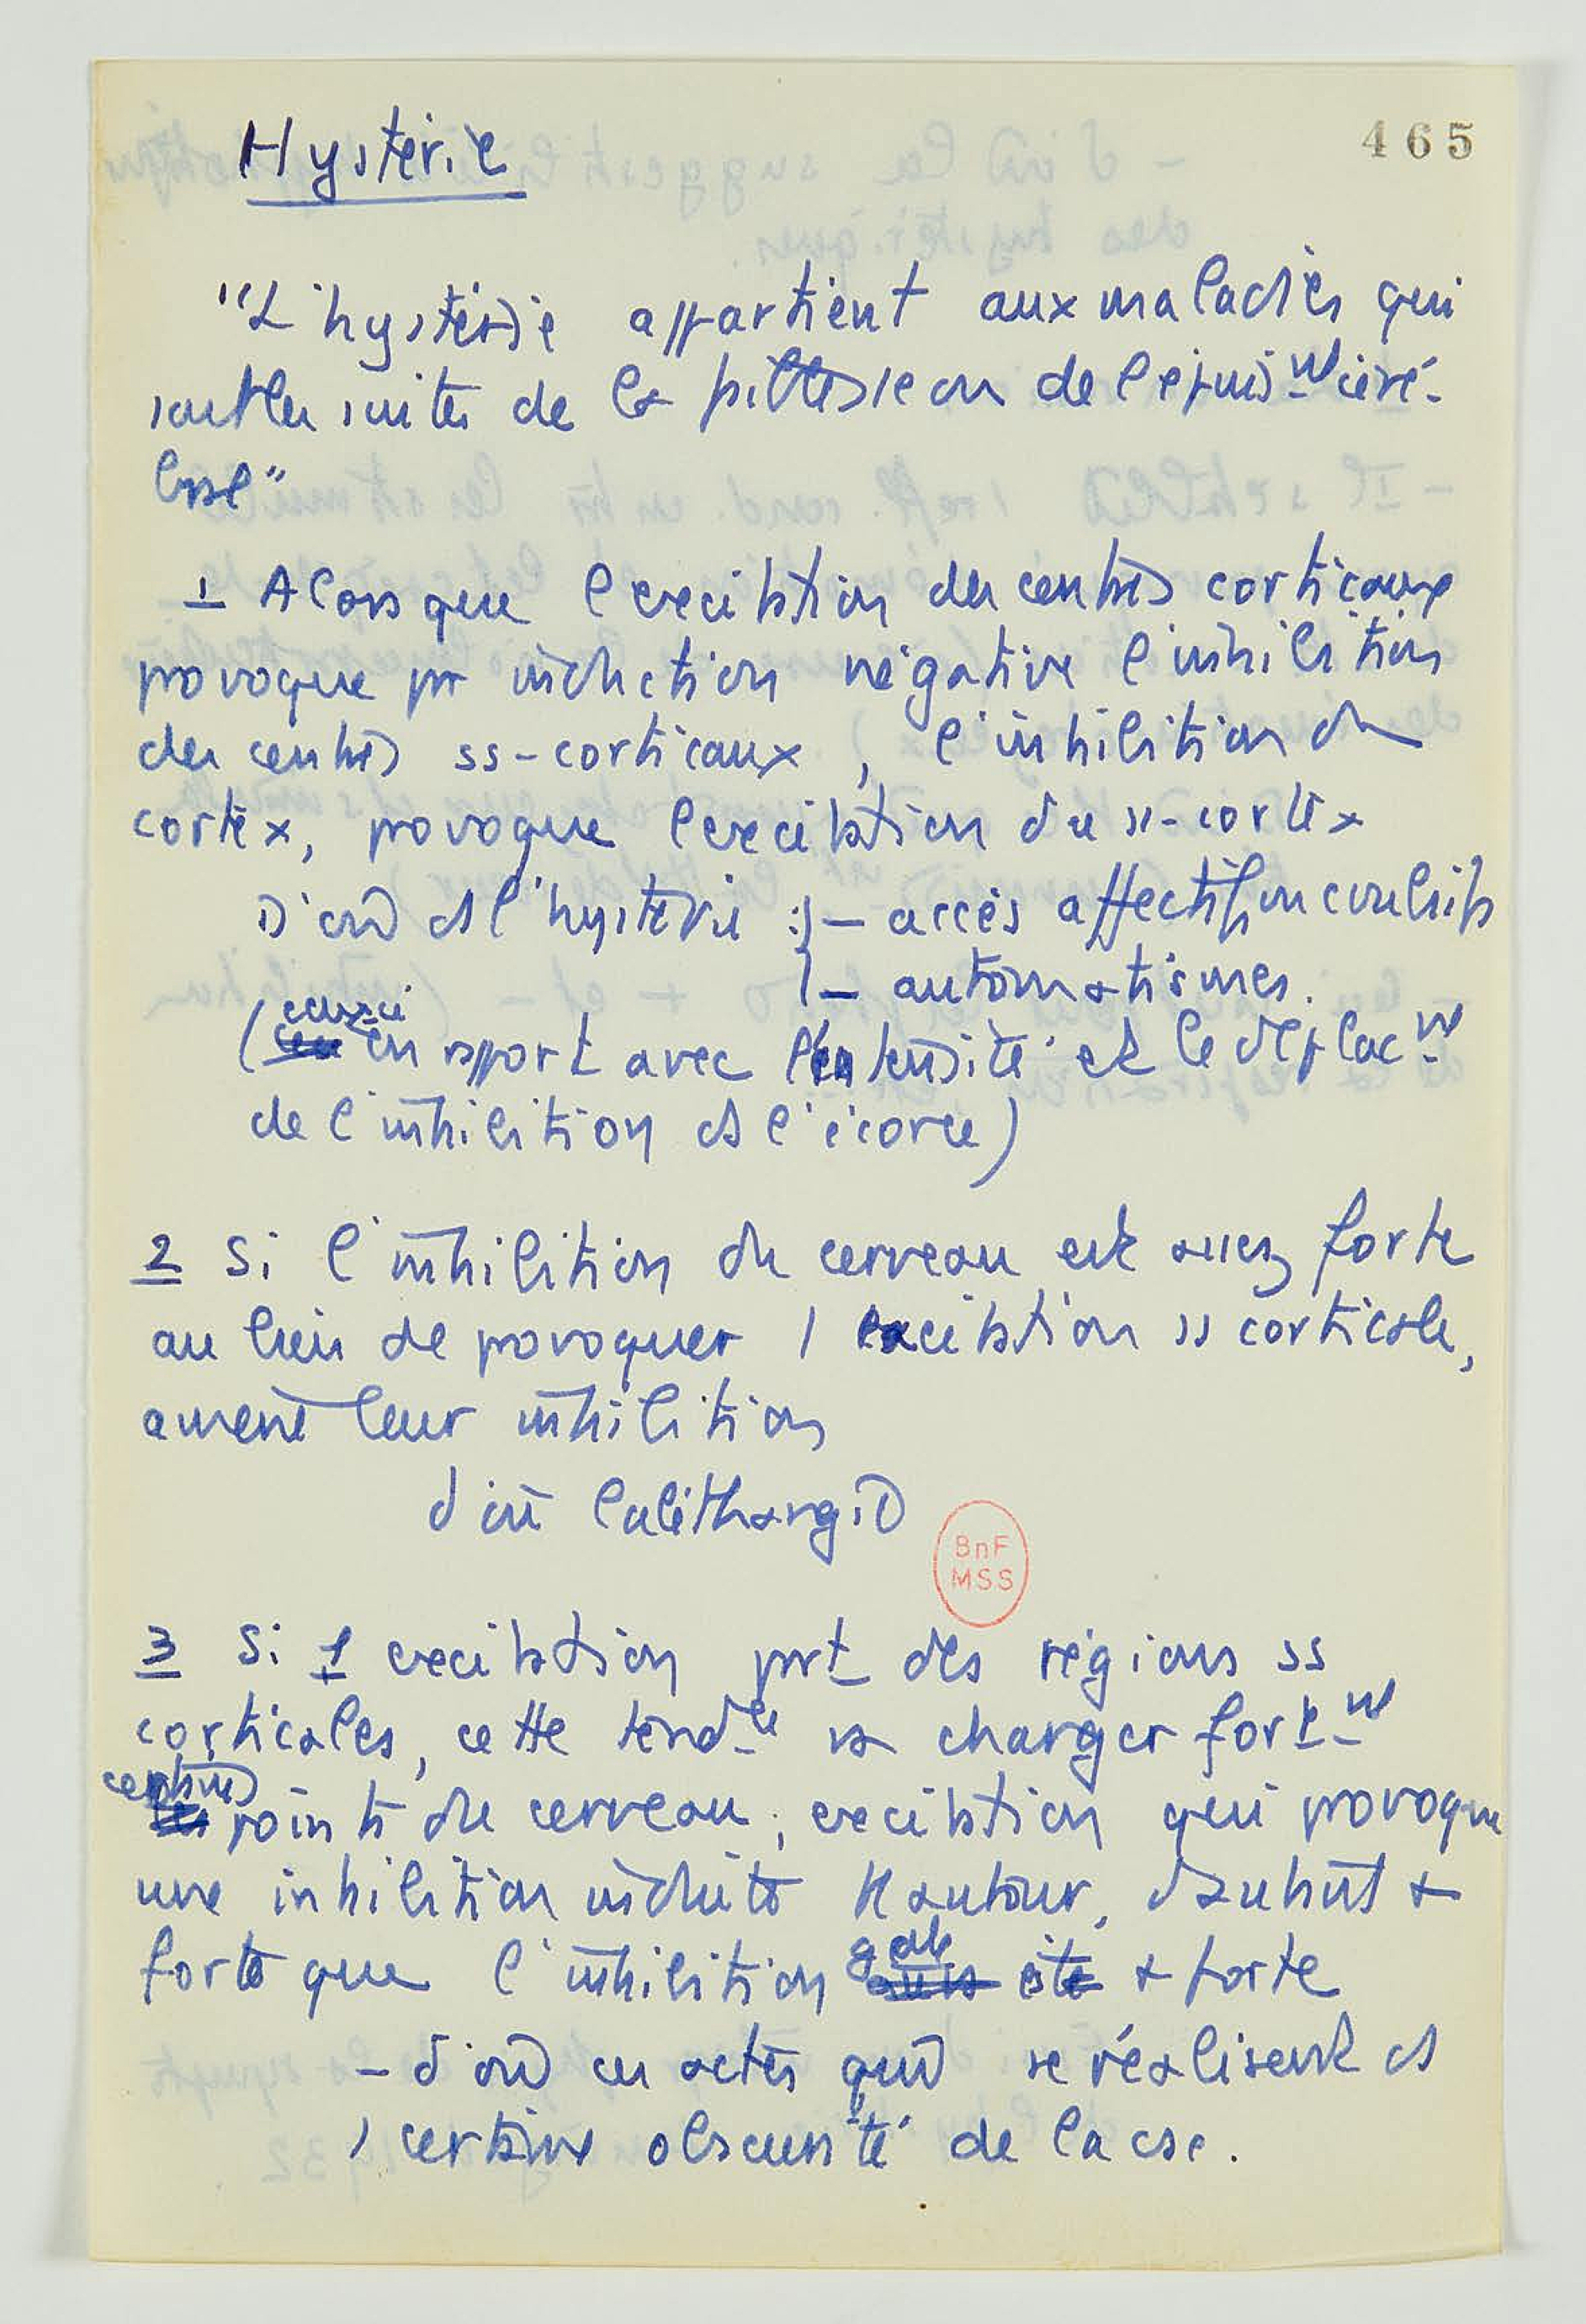 465
Hystérie
"L'hystérie appartient aux maladies qui
sont les suites de la faiblesse ou de l'épuis^nt céré-
bral"
1 Alors que l'excitation des centres corticaux
provoque pr induction négative l'inhibition
des centres ss-corticaux, l'inhibition du
cortex, provoque l'excitation du ss-cortex
D'où ds l'hystérie : - accès affectifs ou convulsifs
- automatismes.
(ceux-ci en rapport avec l'intensité et le déplac^nt
de l'inhibition ds l'écorce)
2 Si l'inhibition du cerveau est assez forte
au lieu de provoquer 1 excitation ss corticale,
amène leur inhibition
d'où la léthargie
BnF
MSS
3 Si 1 excitation part des régions ss
corticales, cette tend^ce va charger fort^nt
certains points du cerveau ; excitation qui provoque
une inhibition induite tt autour, d'autant +
forte que l'inhibition gale + forte
- d'où ces actes qui se réalisent ds
1 certaine obscurité de la csc.